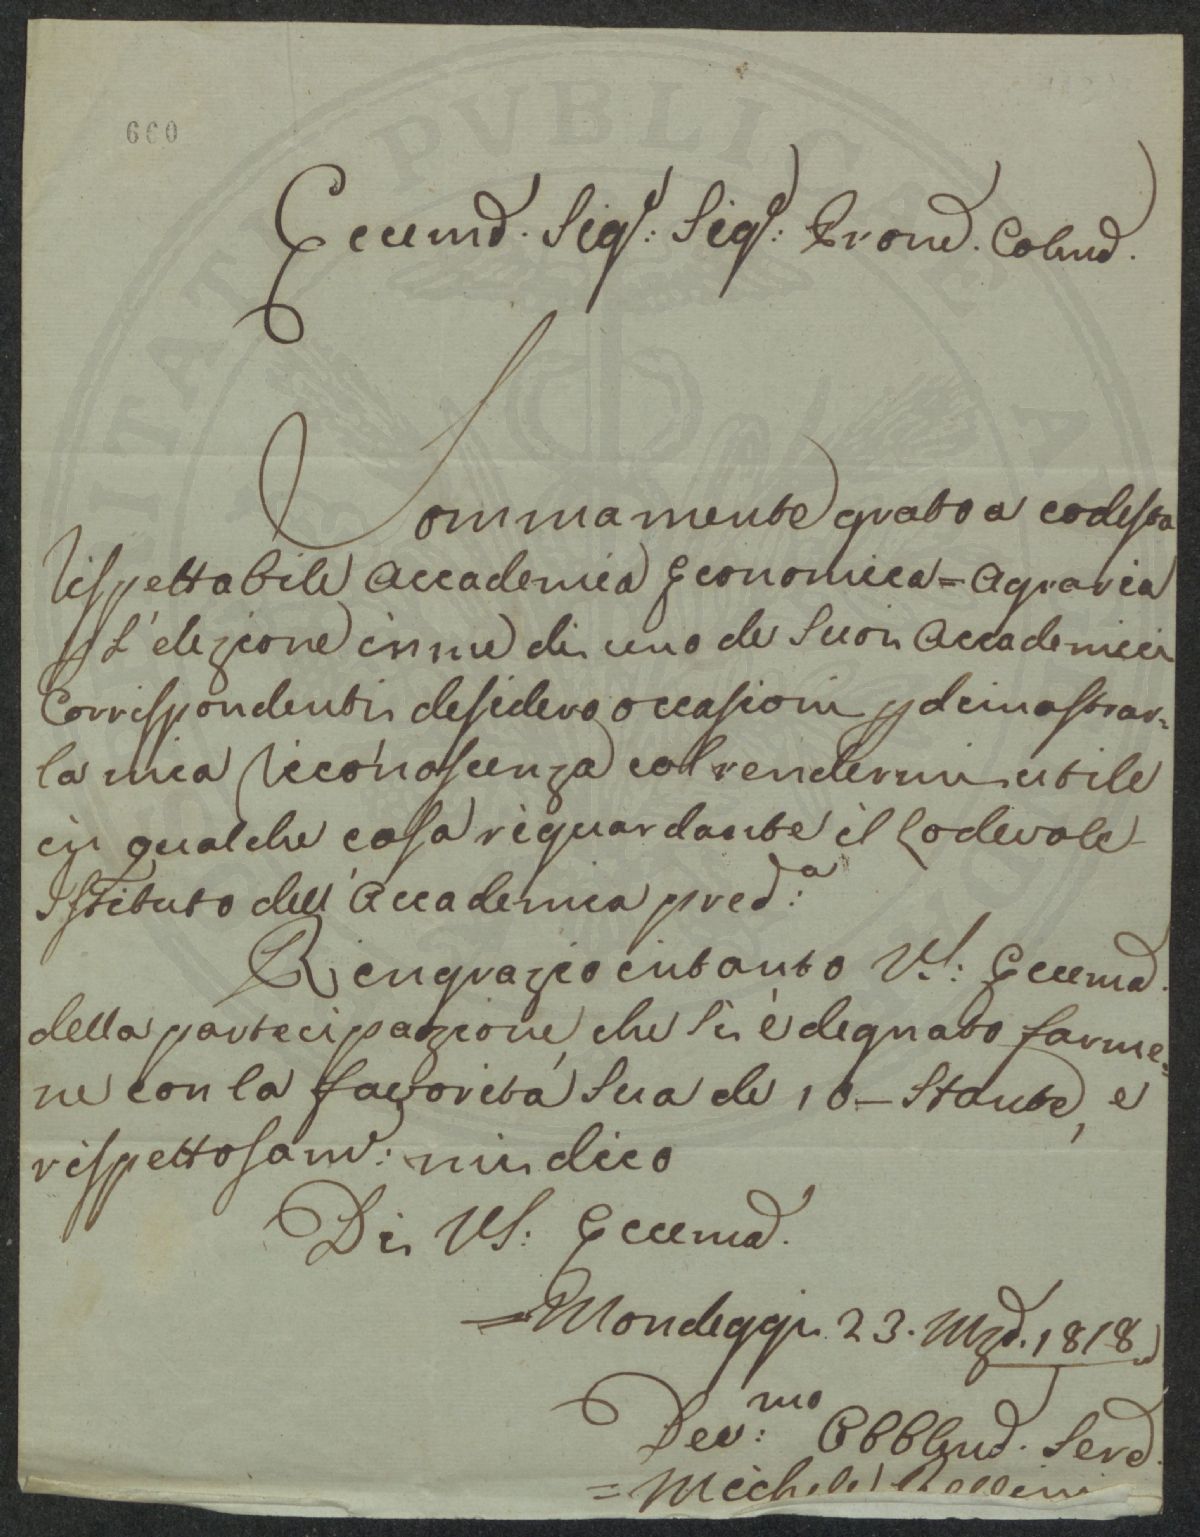 660
Eccmo. Sigr: Sigr: Prone. Colmo.
Sommamente grato a codesta
rispettabile Accademia Economica=Agraria
p L'elezione in me di uno de Suoi Accademici
Corrispondenti desidero occasioni p dimostrar=
la mia riconoscenza col rendermi utile
in qualche cosa riguardante il Lodevole
Istituto dell'Accademia pred:a
Ringrazio intanto VS: Eccma.
della partecipazione, che si è degnato farme=
ne con la favorita Sua de 10 Stante, e
rispettosame: mi dico
Di VS: Eccma.
=Mondeggi 23. Mzo. 1818
Dev:mo Obblmo. Serv.
=Michele